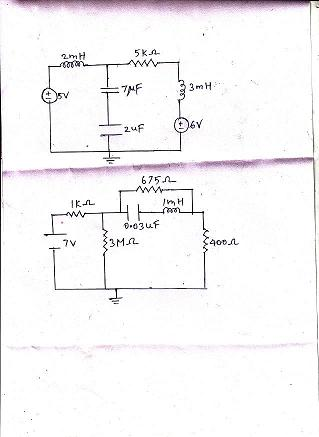 2mH
5kΩ
5V
7μF
3mH
2uF
6V
675Ω
1kΩ
1mH
0.03uF
7V
3MΩ
400Ω